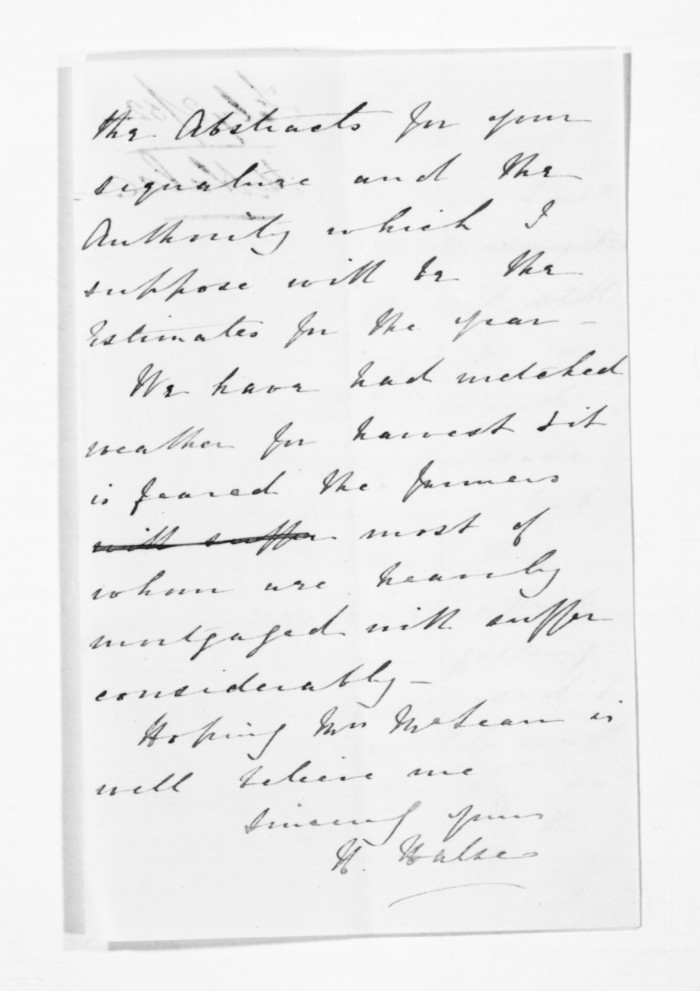 the Abstracts for your
signature and the
Authority which I
suppose will be the
Estimates for the year –
We have had wretched
weather for harvest & it
is feared the farmers
will suffer most of
whom are heavily
mortgaged will suffer
considerably –
Hoping Mrs McLean is
well believe me
sincerely yours
H. Halse